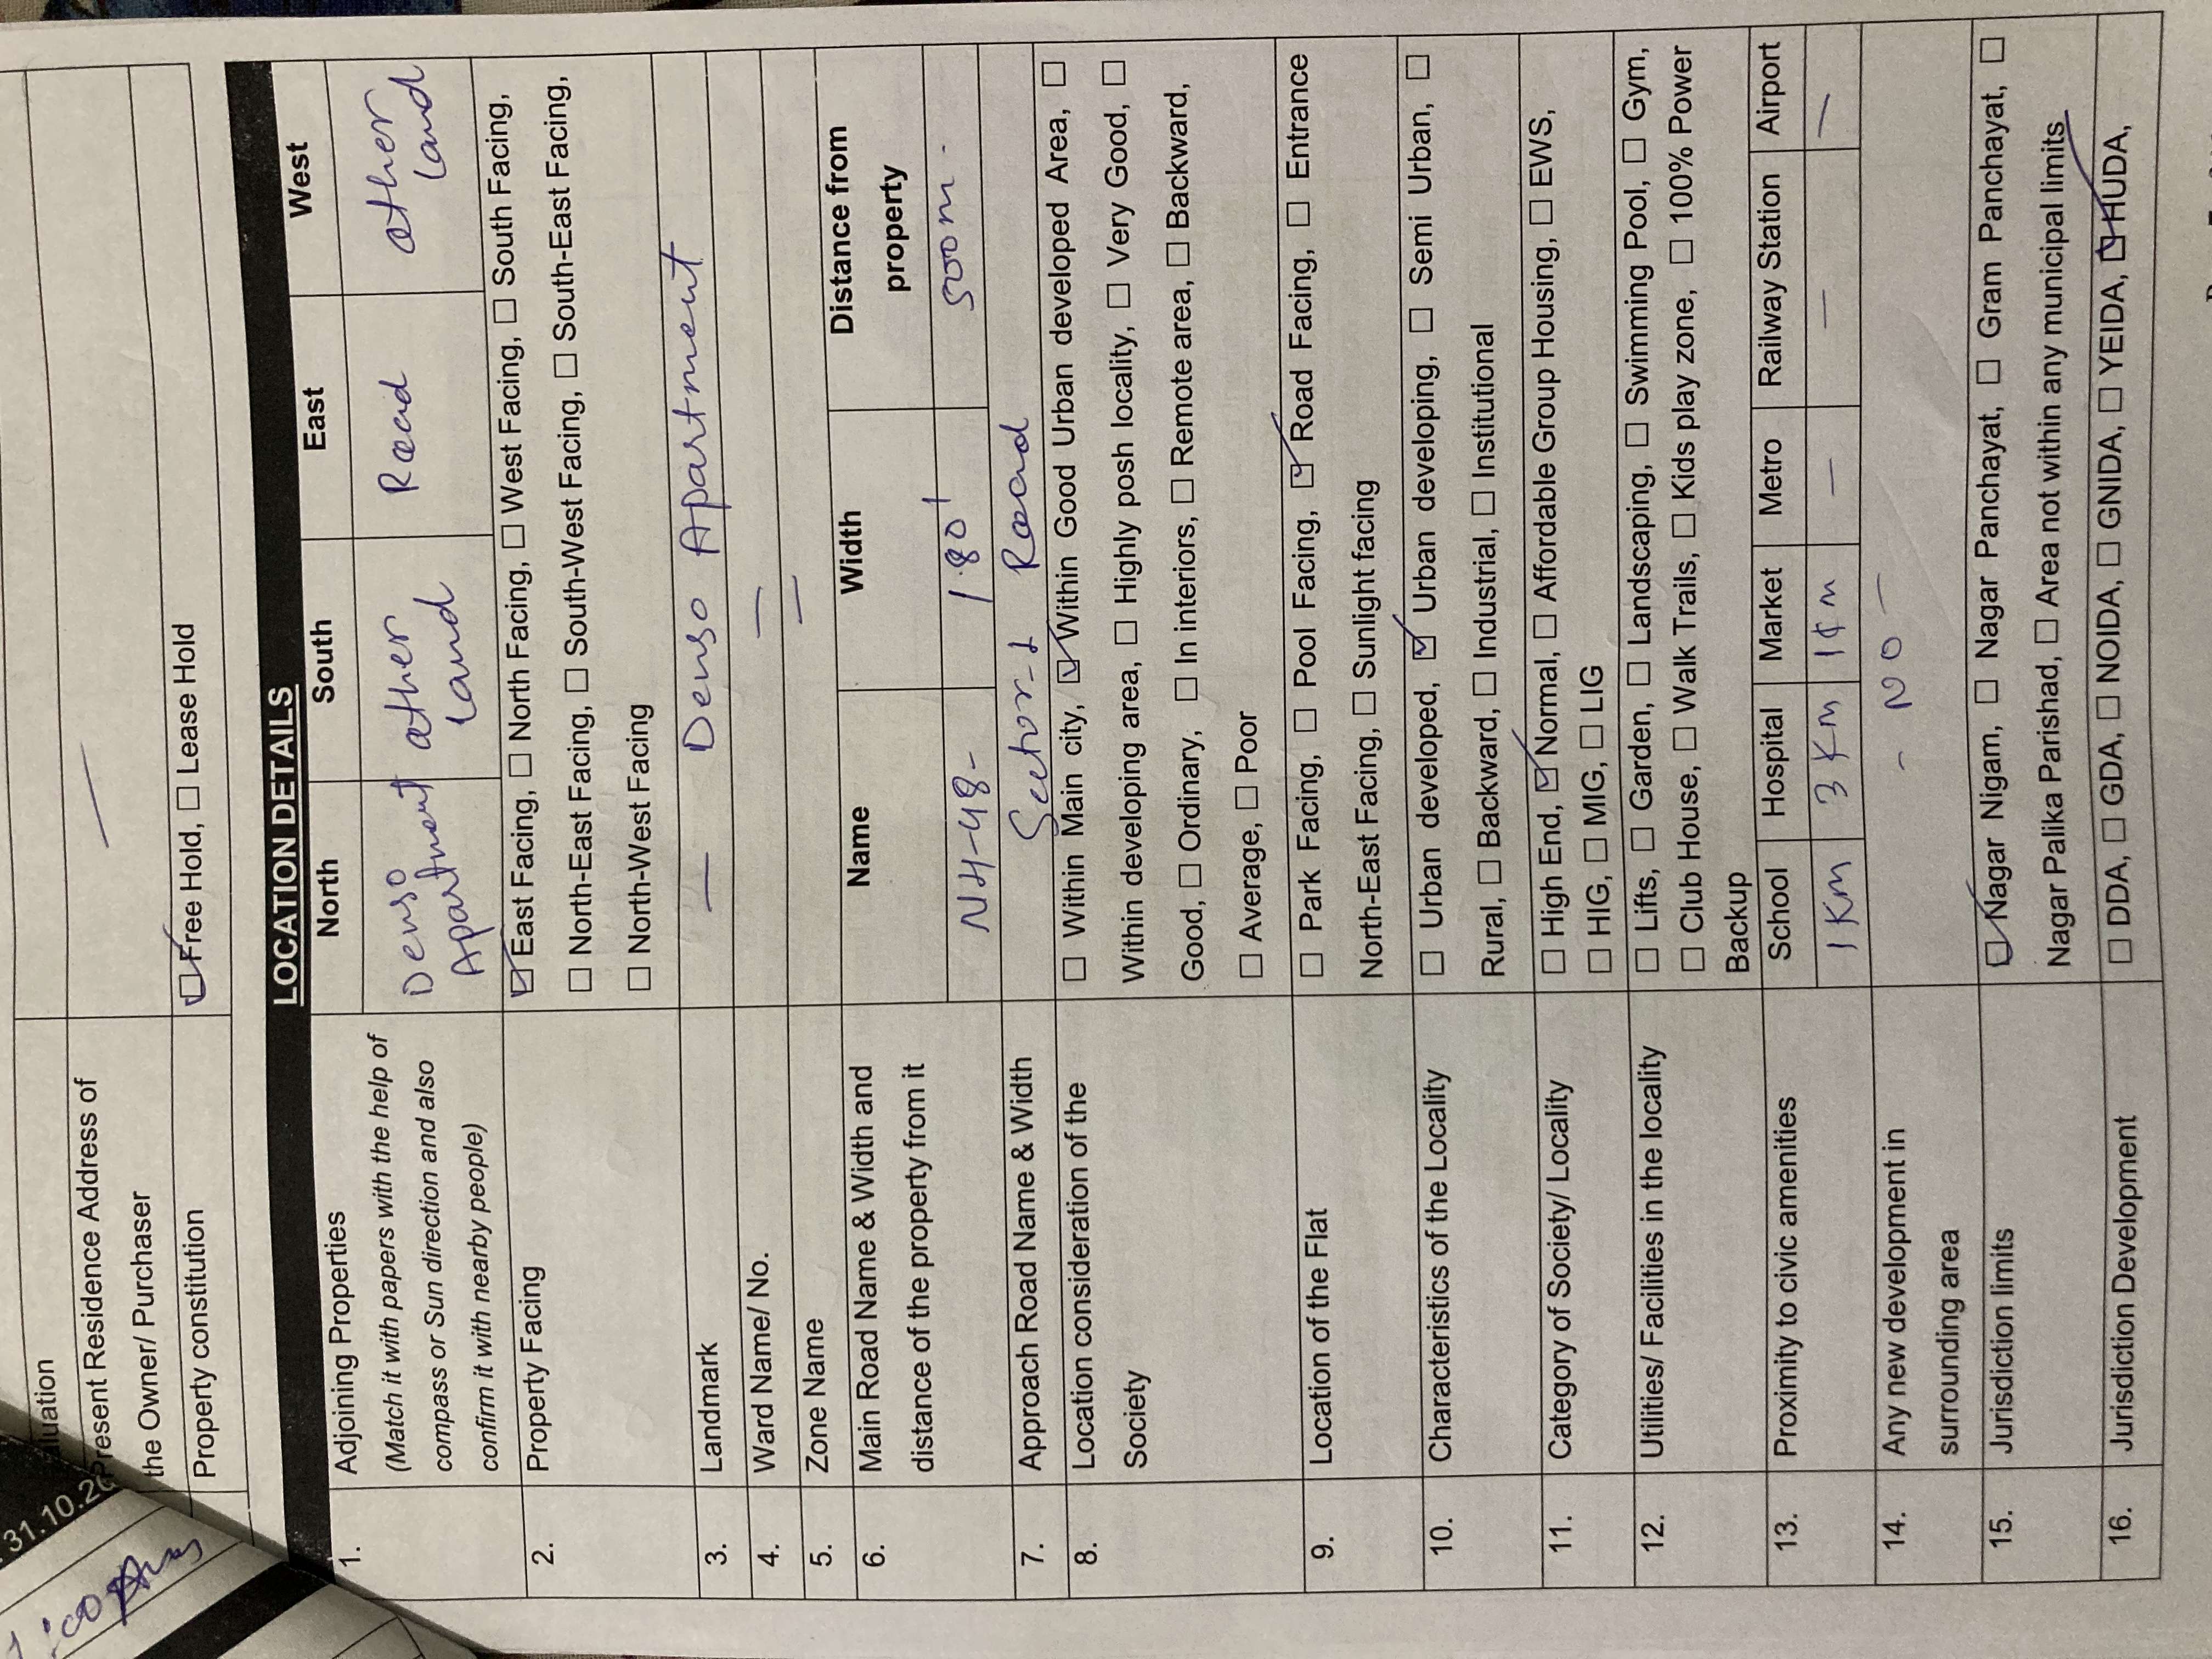 31.10.20
luation
Present Residence Address of
the Owner/ Purchaser
—
Property constitution
☑ Free Hold, ☐ Lease Hold
LOCATION DETAILS
1. Adjoining Properties
(Match it with papers with the help of
compass or Sun direction and also
confirm it with nearby people)
North South East West
Denso Apartment other Land Road other Land
2. Property Facing
☑ East Facing, ☐ North Facing, ☐ West Facing, ☐ South Facing,
☐ North-East Facing, ☐ South-West Facing, ☐ South-East Facing,
☐ North-West Facing
3. Landmark — Denso Apartment
4. Ward Name/ No. —
5. Zone Name —
6. Main Road Name & Width and
distance of the property from it
Name Width Distance from
property
NH-48- 180' 500m.
7. Approach Road Name & Width Sector-1 Road
8. Location consideration of the
Society
☐ Within Main city, ☑ Within Good Urban developed Area, ☐
Within developing area, ☐ Highly posh locality, ☐ Very Good, ☐
Good, ☐ Ordinary, ☐ In interiors, ☐ Remote area, ☐ Backward,
☐ Average, ☐ Poor
9. Location of the Flat
☐ Park Facing, ☐ Pool Facing, ☑ Road Facing, ☐ Entrance
North-East Facing, ☐ Sunlight facing
10. Characteristics of the Locality
☐ Urban developed, ☑ Urban developing, ☐ Semi Urban, ☐
Rural, ☐ Backward, ☐ Industrial, ☐ Institutional
11. Category of Society/ Locality
☐ High End, ☑ Normal, ☐ Affordable Group Housing, ☐ EWS,
☐ HIG, ☐ MIG, ☐ LIG
12. Utilities/ Facilities in the locality
☐ Lifts, ☐ Garden, ☐ Landscaping, ☐ Swimming Pool, ☐ Gym,
☐ Club House, ☐ Walk Trails, ☐ Kids play zone, ☐ 100% Power
Backup
13. Proximity to civic amenities
School Hospital Market Metro Railway Station Airport
1 Km 3 Km 1 Km — — —
14. Any new development in
surrounding area
- NO -
15. Jurisdiction limits
☑ Nagar Nigam, ☐ Nagar Panchayat, ☐ Gram Panchayat, ☐
Nagar Palika Parishad, ☐ Area not within any municipal limits
16. Jurisdiction Development
☐ DDA, ☐ GDA, ☐ NOIDA, ☐ GNIDA, ☐ YEIDA, ☑ HUDA,